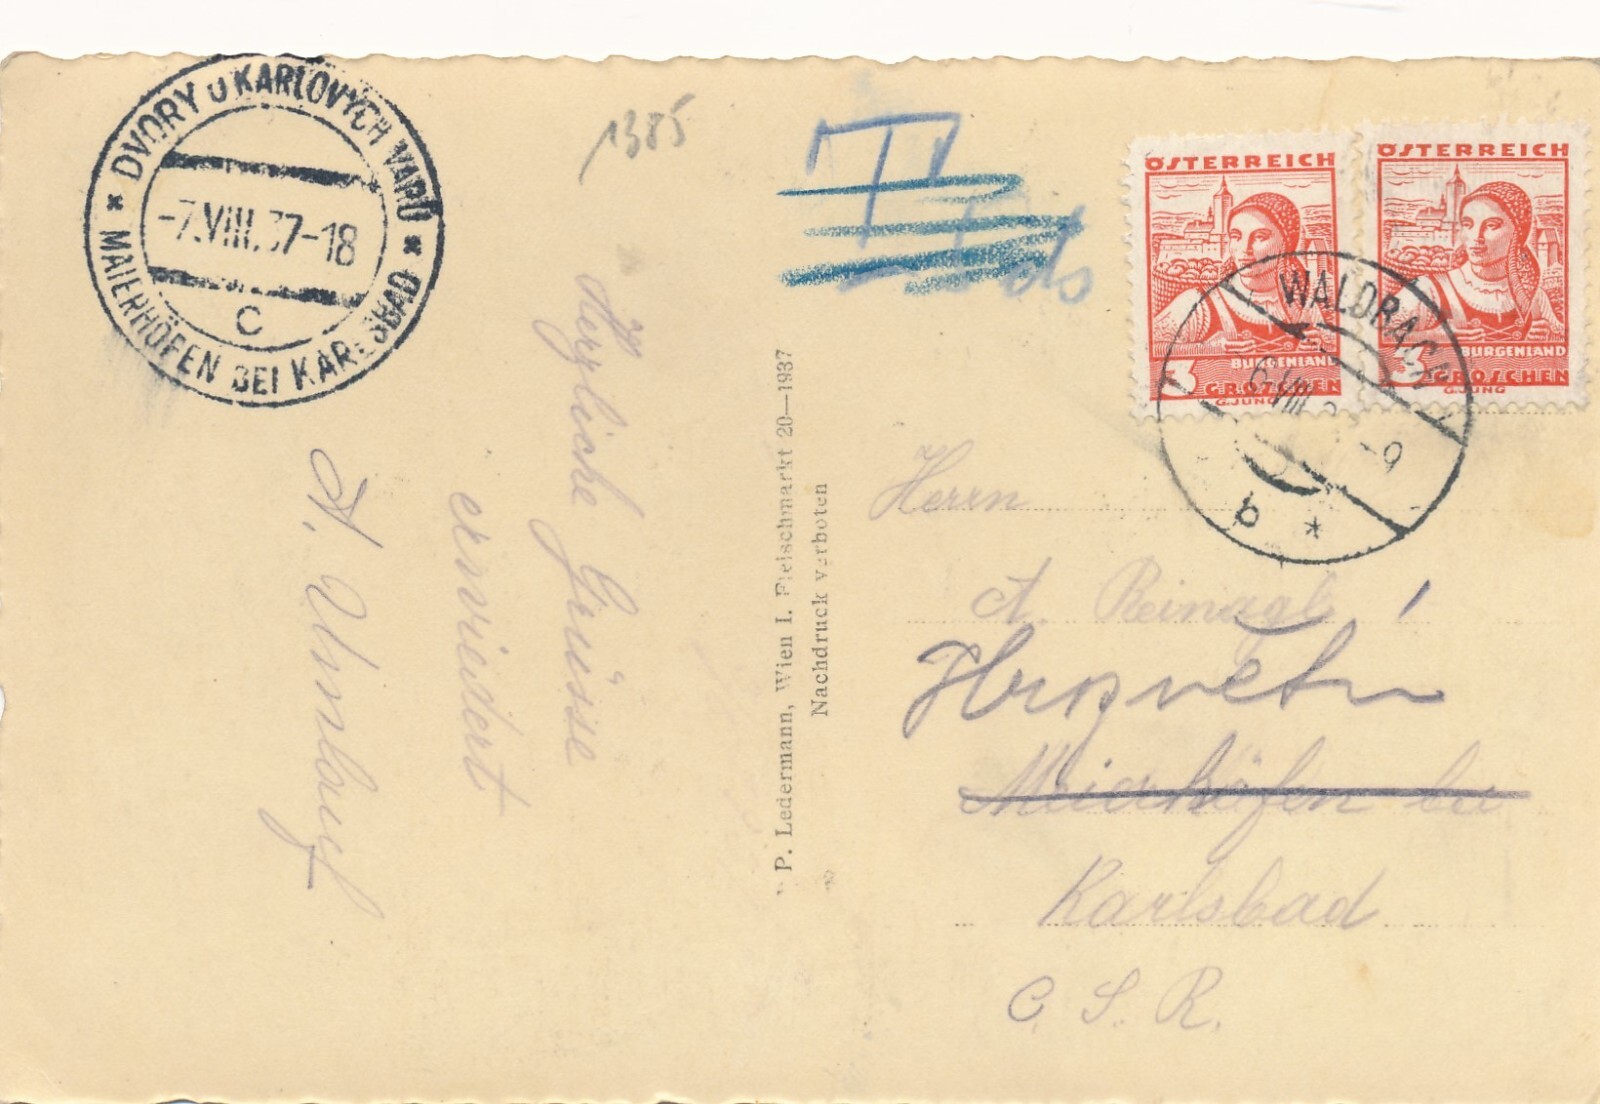 DVORY U KARLOVÝCH VARŮ
-7.VIII.37-18
C
MAIERHÖFEN BEI KARLSBAD
1385
T
ÖSTERREICH
BURGENLAND
3 GROSCHEN
G.JUNG
ÖSTERREICH
BURGENLAND
3 GROSCHEN
G.JUNG
WALDBACH
6.VIII. -9
b *
Herzliche Grüsse
erwiedert
A.
P. Ledermann, Wien I. Fleischmarkt 20—1937
Nachdruck verboten
Herrn
A. Reinagl
Meierhöfen bei
Karlsbad
C. S. R.